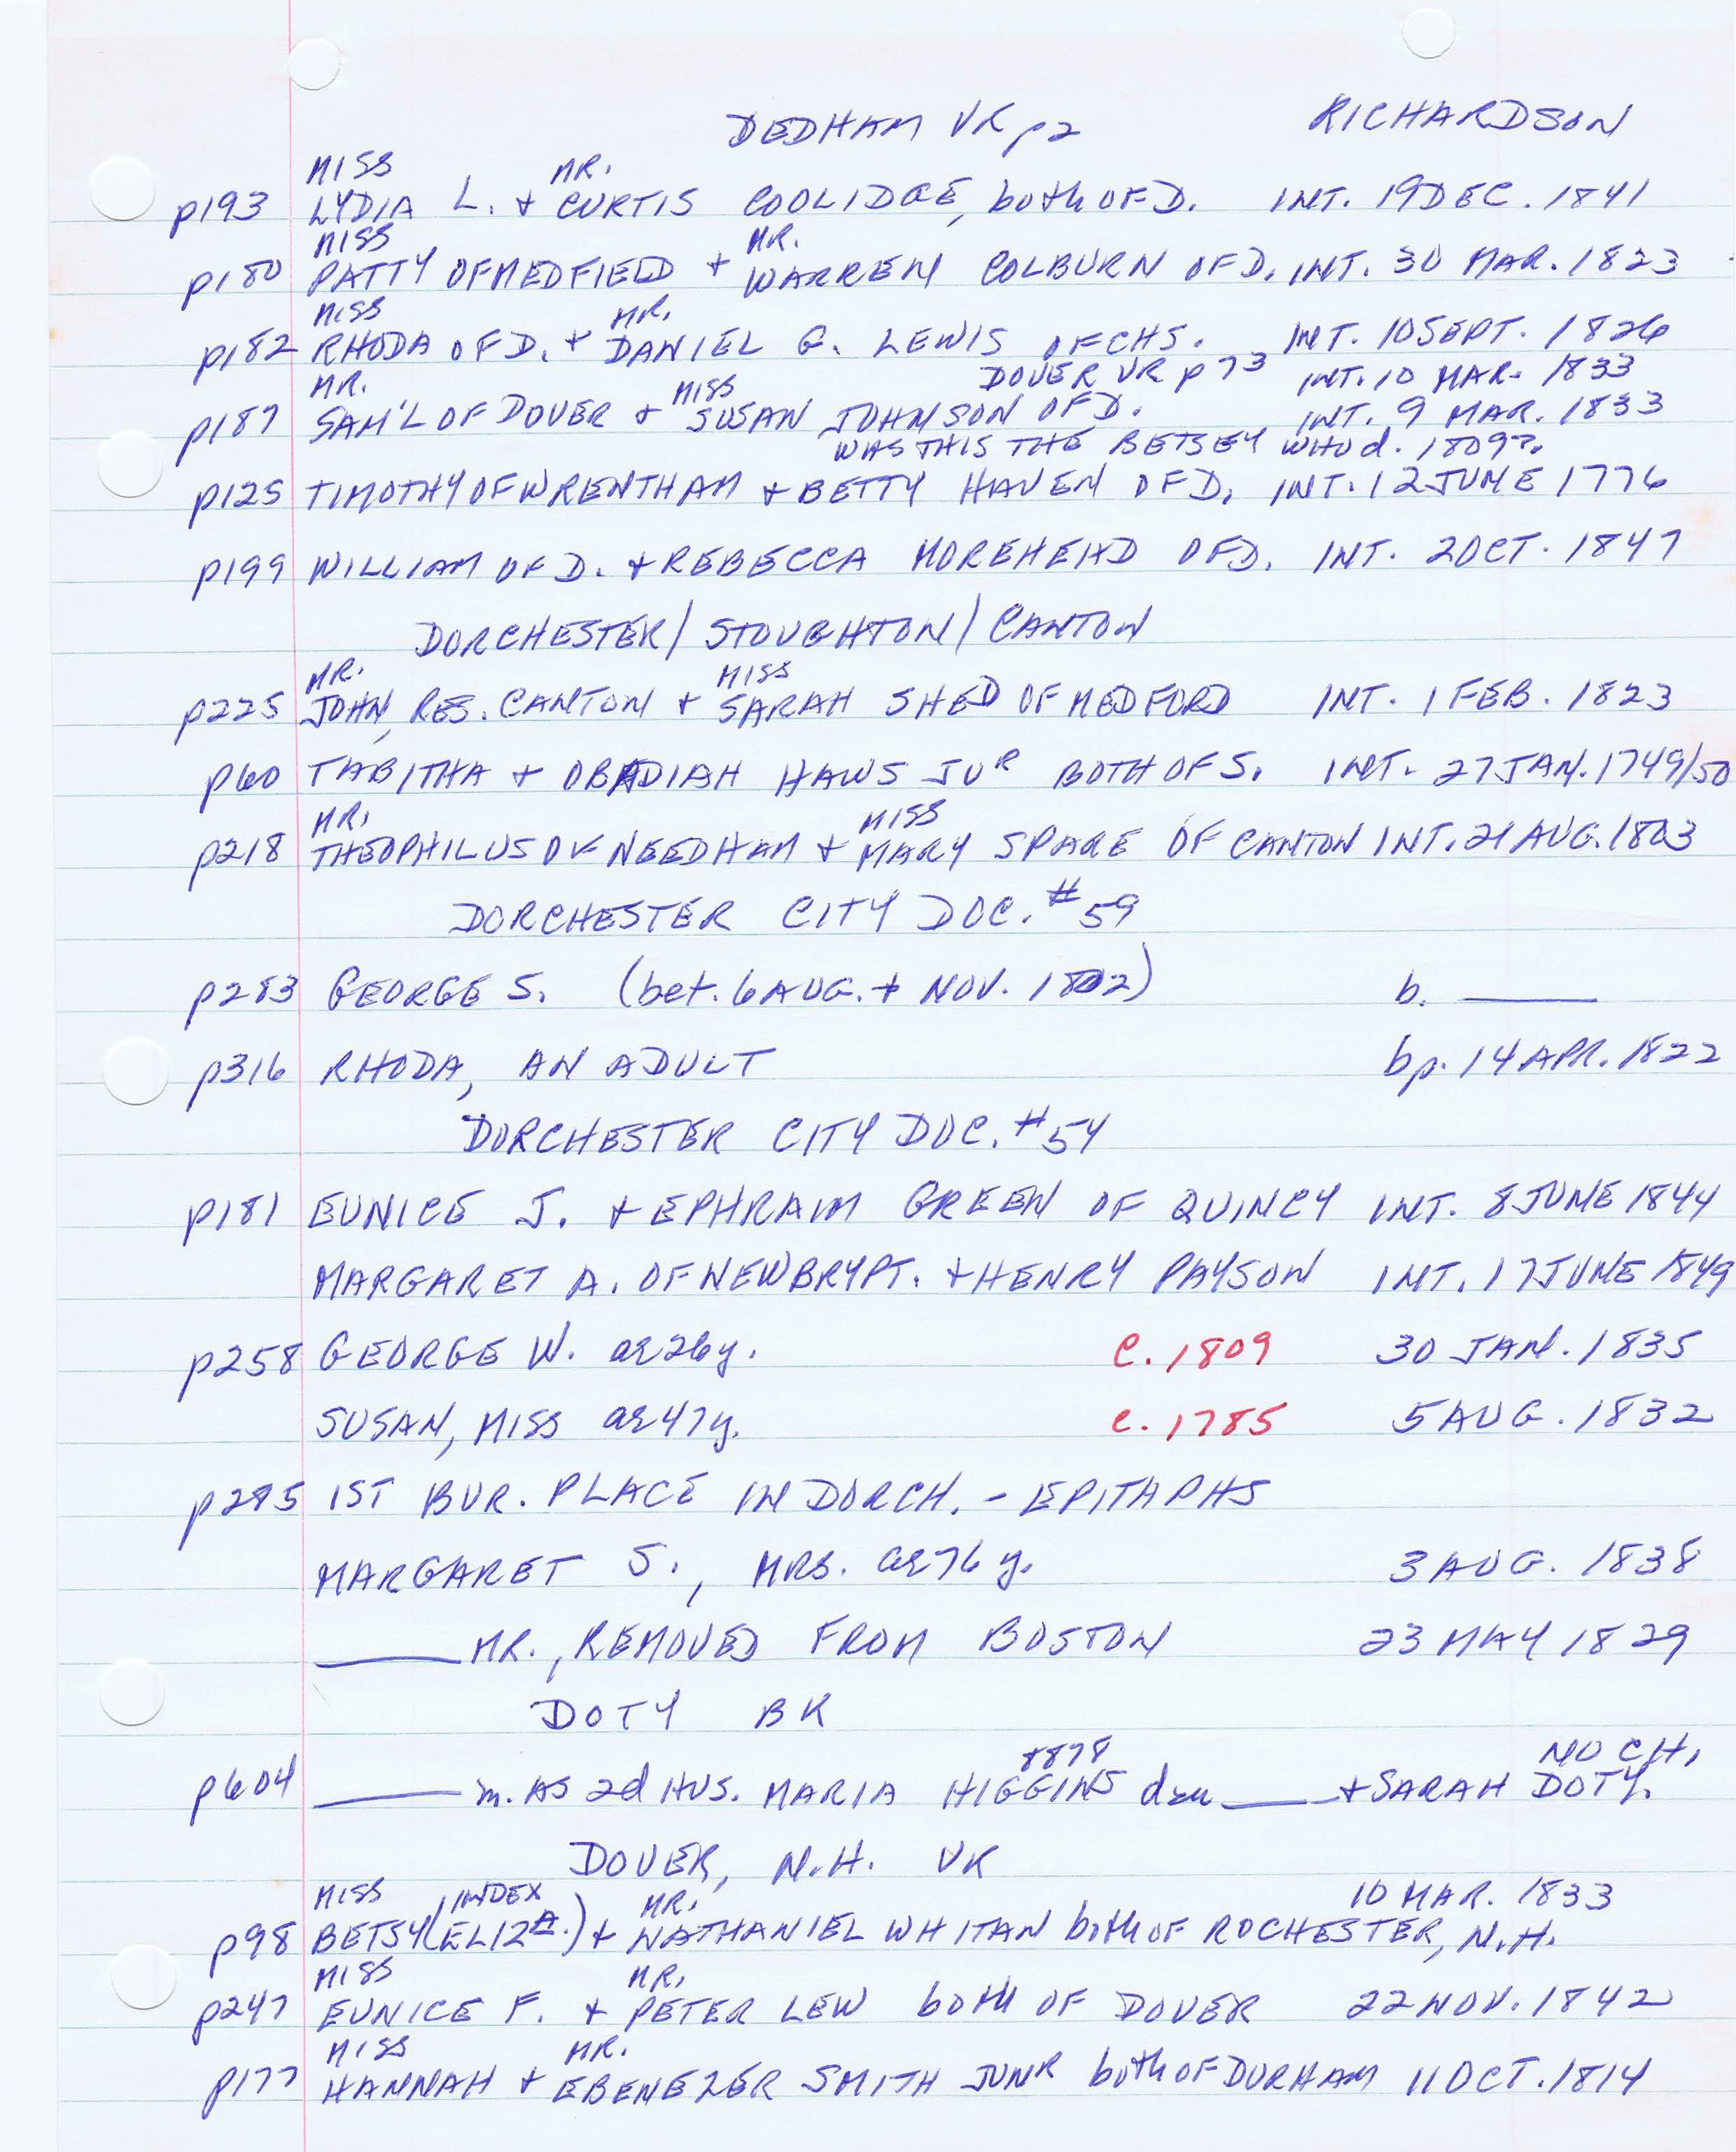 DEDHAM VR p2 RICHARDSON
MISS MR.
p193 LYDIA L. + CURTIS COOLIDGE, both OF D. INT. 19 DEC. 1841
MISS MR.
p180 PATTY OF MEDFIELD + WARREN COLBURN OF D. INT. 30 MAR. 1823
MISS MR.
p182 RHODA OF D. + DANIEL G. LEWIS OF CHS. INT. 10 SEPT. 1826
DOVER VR p73 INT. 10 MAR. 1833
MR. MISS
p187 SAM'L OF DOVER + SUSAN JOHNSON OF D. INT. 9 MAR. 1833
WAS THIS THE BETSEY WHO d. 1809?
p125 TIMOTHY OF WRENTHAM + BETTY HAVEN OF D. INT. 12 JUNE 1776
p199 WILLIAM OF D. + REBECCA MOREHEAD OF D. INT. 2 OCT. 1847
DORCHESTER/STOUGHTON/CANTON
MR. MISS
p225 JOHN, RES. CANTON + SARAH SHED OF MEDFORD INT. 1 FEB. 1823
p60 TABITHA + OBADIAH HAWS JUR BOTH OF S. INT. 27 JAN. 1749/50
MR. MISS
p218 THEOPHILUS OF NEEDHAM + MARY SPARE OF CANTON INT. 21 AUG. 1803
DORCHESTER CITY DOC. #59
p283 GEORGE S. (bet. 6 AUG. + NOV. 1802) b. ____
p316 RHODA, AN ADULT bp. 14 APR. 1822
DORCHESTER CITY DOC. #54
p181 EUNICE J. + EPHRAIM GREEN OF QUINCY INT. 8 JUNE 1844
MARGARET A. OF NEWBRYPT. + HENRY PAYSON INT. 17 JUNE 1849
p258 GEORGE W. ae 26y. c. 1809 30 JAN. 1835
SUSAN, MISS ae 47y. c. 1785 5 AUG. 1832
p285 1ST BUR. PLACE IN DORCH. - EPITAPHS
MARGARET S., MRS. ae 76 y. 3 AUG. 1838
____ MR., REMOVED FROM BOSTON 23 MAY 1829
DOTY BK
8878 NO CH.
p604 ____ m. AS 2d HUS. MARIA HIGGINS dau ____ + SARAH DOTY.
DOVER, N.H. VR
MISS INDEX MR. 10 MAR. 1833
p98 BETSY (ELIZA.) + NATHANIEL WHITAN both OF ROCHESTER, N.H.
MISS MR.
p247 EUNICE F. + PETER LEW both OF DOVER 22 NOV. 1842
MISS MR.
p177 HANNAH + EBENEZER SMITH JUNR both OF DURHAM 11 OCT. 1814